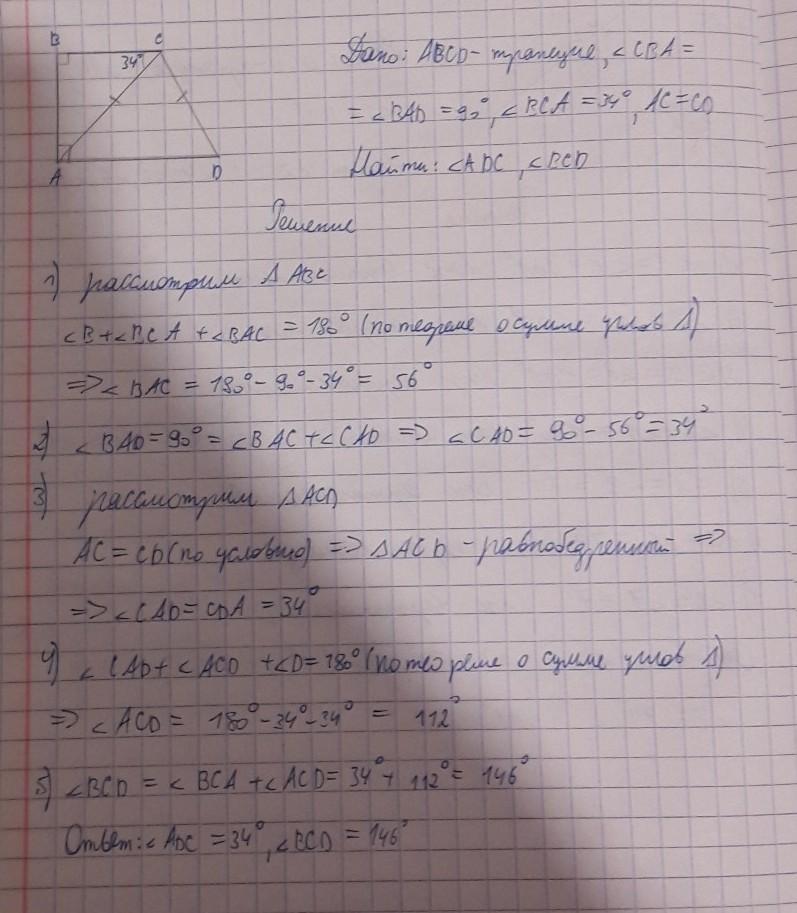 B C
34°
A D
Дано: ABCD - трапеция, ∠CBA =
= ∠BAD = 90°, ∠BCA = 34°, AC = CD
Найти: ∠ADC, ∠BCD
Решение
1) рассмотрим Δ ABC
∠B + ∠BCA + ∠BAC = 180° (по теореме о сумме углов Δ)
=> ∠BAC = 180° - 90° - 34° = 56°
2) ∠BAD = 90° = ∠BAC + ∠CAD => ∠CAD = 90° - 56° = 34°
3) рассмотрим Δ ACD
AC = CD (по условию) => Δ ACD - равнобедренный =>
=> ∠CAD = CDA = 34°
4) ∠CAD + ∠ACD + ∠D = 180° (по теореме о сумме углов Δ)
=> ∠ACD = 180° - 34° - 34° = 112°
5) ∠BCD = ∠BCA + ∠ACD = 34° + 112° = 146°
Ответ: ∠ADC = 34°, ∠BCD = 146°